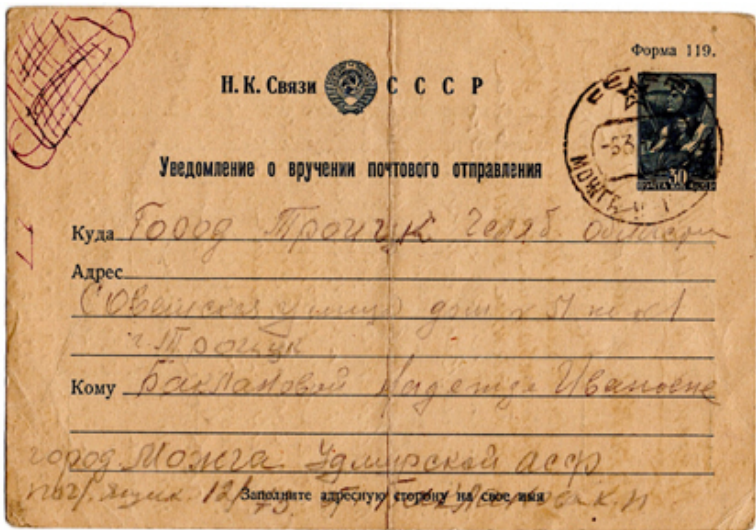 Форма 119.
Н. К. Связи СССР
Уведомление о вручении почтового отправления
30
ПОЧТА СССР
МОЖГА
Куда Город Троицк Челяб. области
Адрес
Советская улица дом № 51 кв № 1
г. Троицк
Кому Баклановой Надежде Ивановне
город Можга Удмурской асср
почт. ящик 12/
Заполните адресную сторону на свое имя